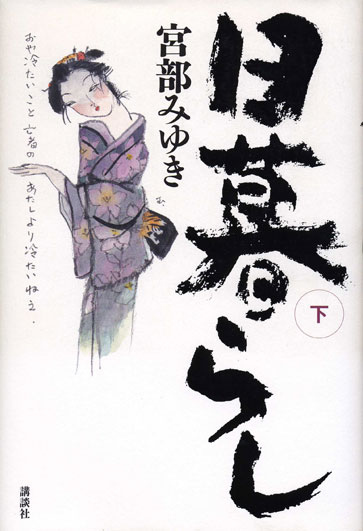 日暮らし
下
宮部みゆき
おや冷たいこと 亡者の あたしより冷たいねえ.
講談社